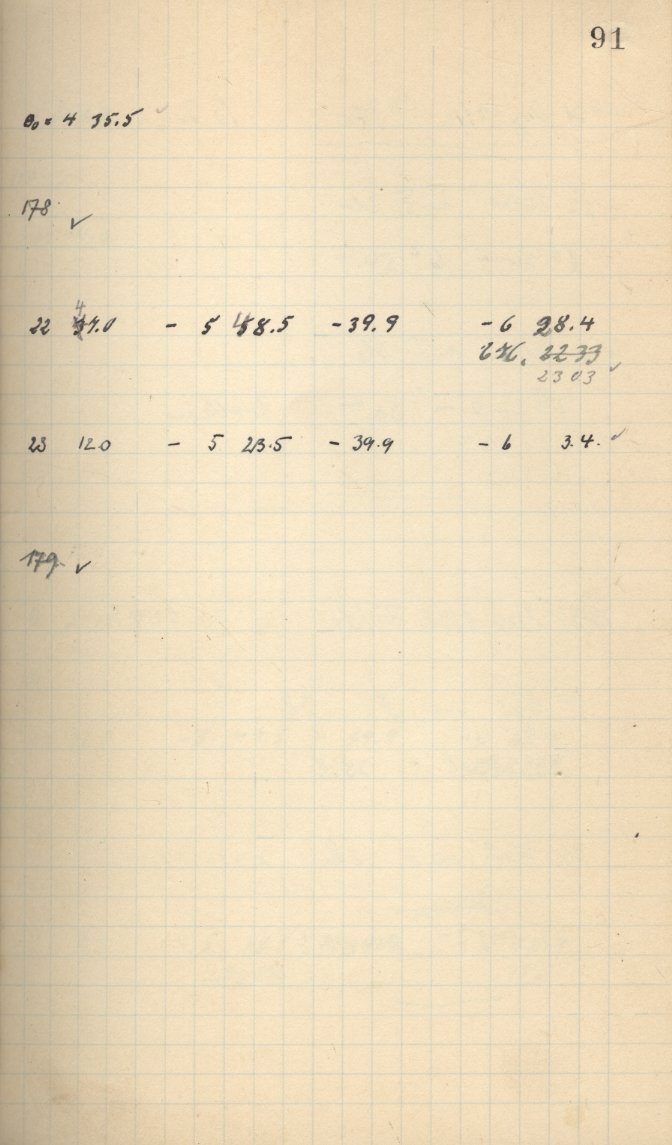 91
θ₀ = 4 35.5 ✓
178 ✓
4
22 37.0 - 5 48.5 - 39.9 - 6 28.4
2233 ✓
2303
23 12.0 - 5 23.5 - 39.9 - 6 3.4. ✓
179. ✓